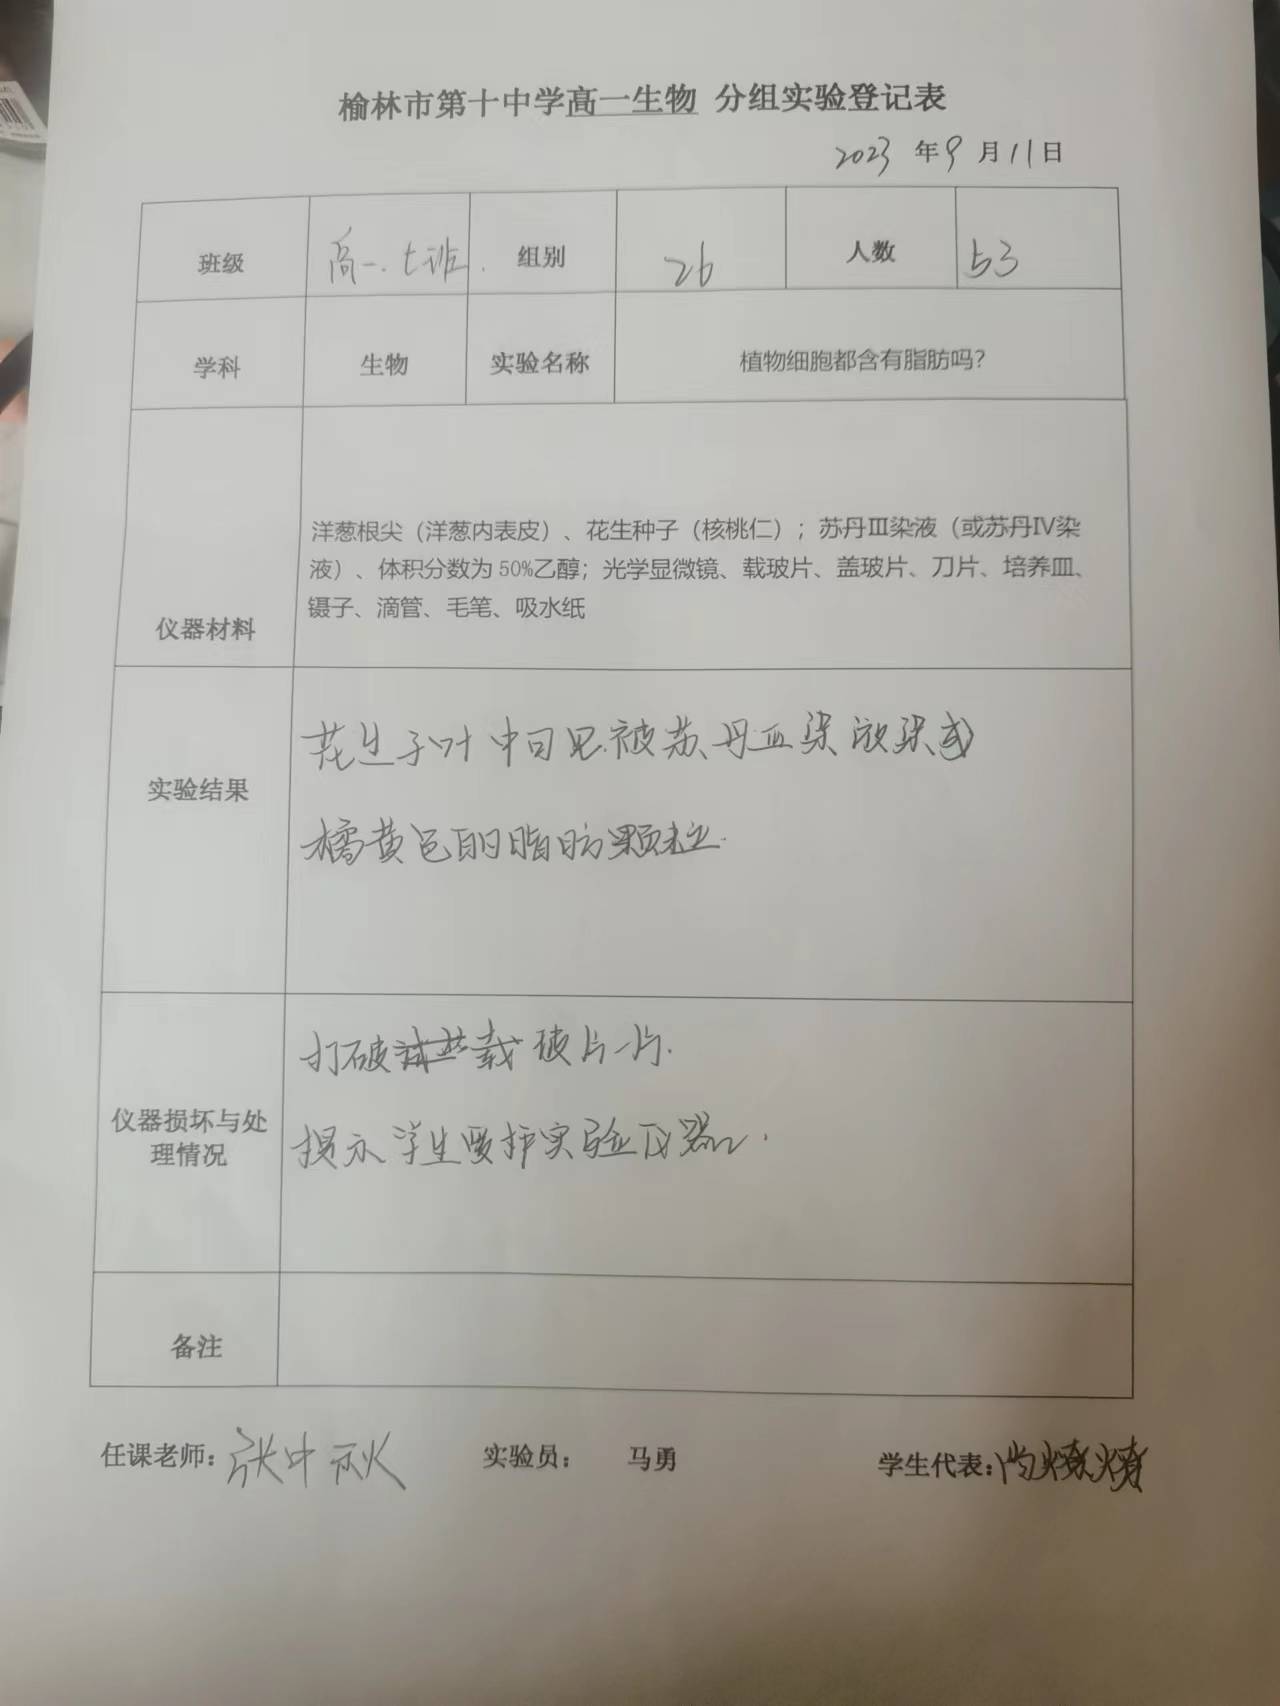 榆林市第十中学高一生物 分组实验登记表
2023 年9月11日
班级 高一.七班. 组别 26 人数 53
学科 生物 实验名称 植物细胞都含有脂肪吗？
仪器材料
洋葱根尖（洋葱内表皮）、花生种子（核桃仁）；苏丹Ⅲ染液（或苏丹Ⅳ染
液）、体积分数为 50%乙醇；光学显微镜、载玻片、盖玻片、刀片、培养皿、
镊子、滴管、毛笔、吸水纸
实验结果
花生子叶中可见被苏丹Ⅲ染液染成
橘黄色的脂肪颗粒.
仪器损坏与处
理情况
打破载玻片一片.
提示学生爱护实验仪器.
备注
任课老师：张中秋 实验员： 马勇 学生代表：